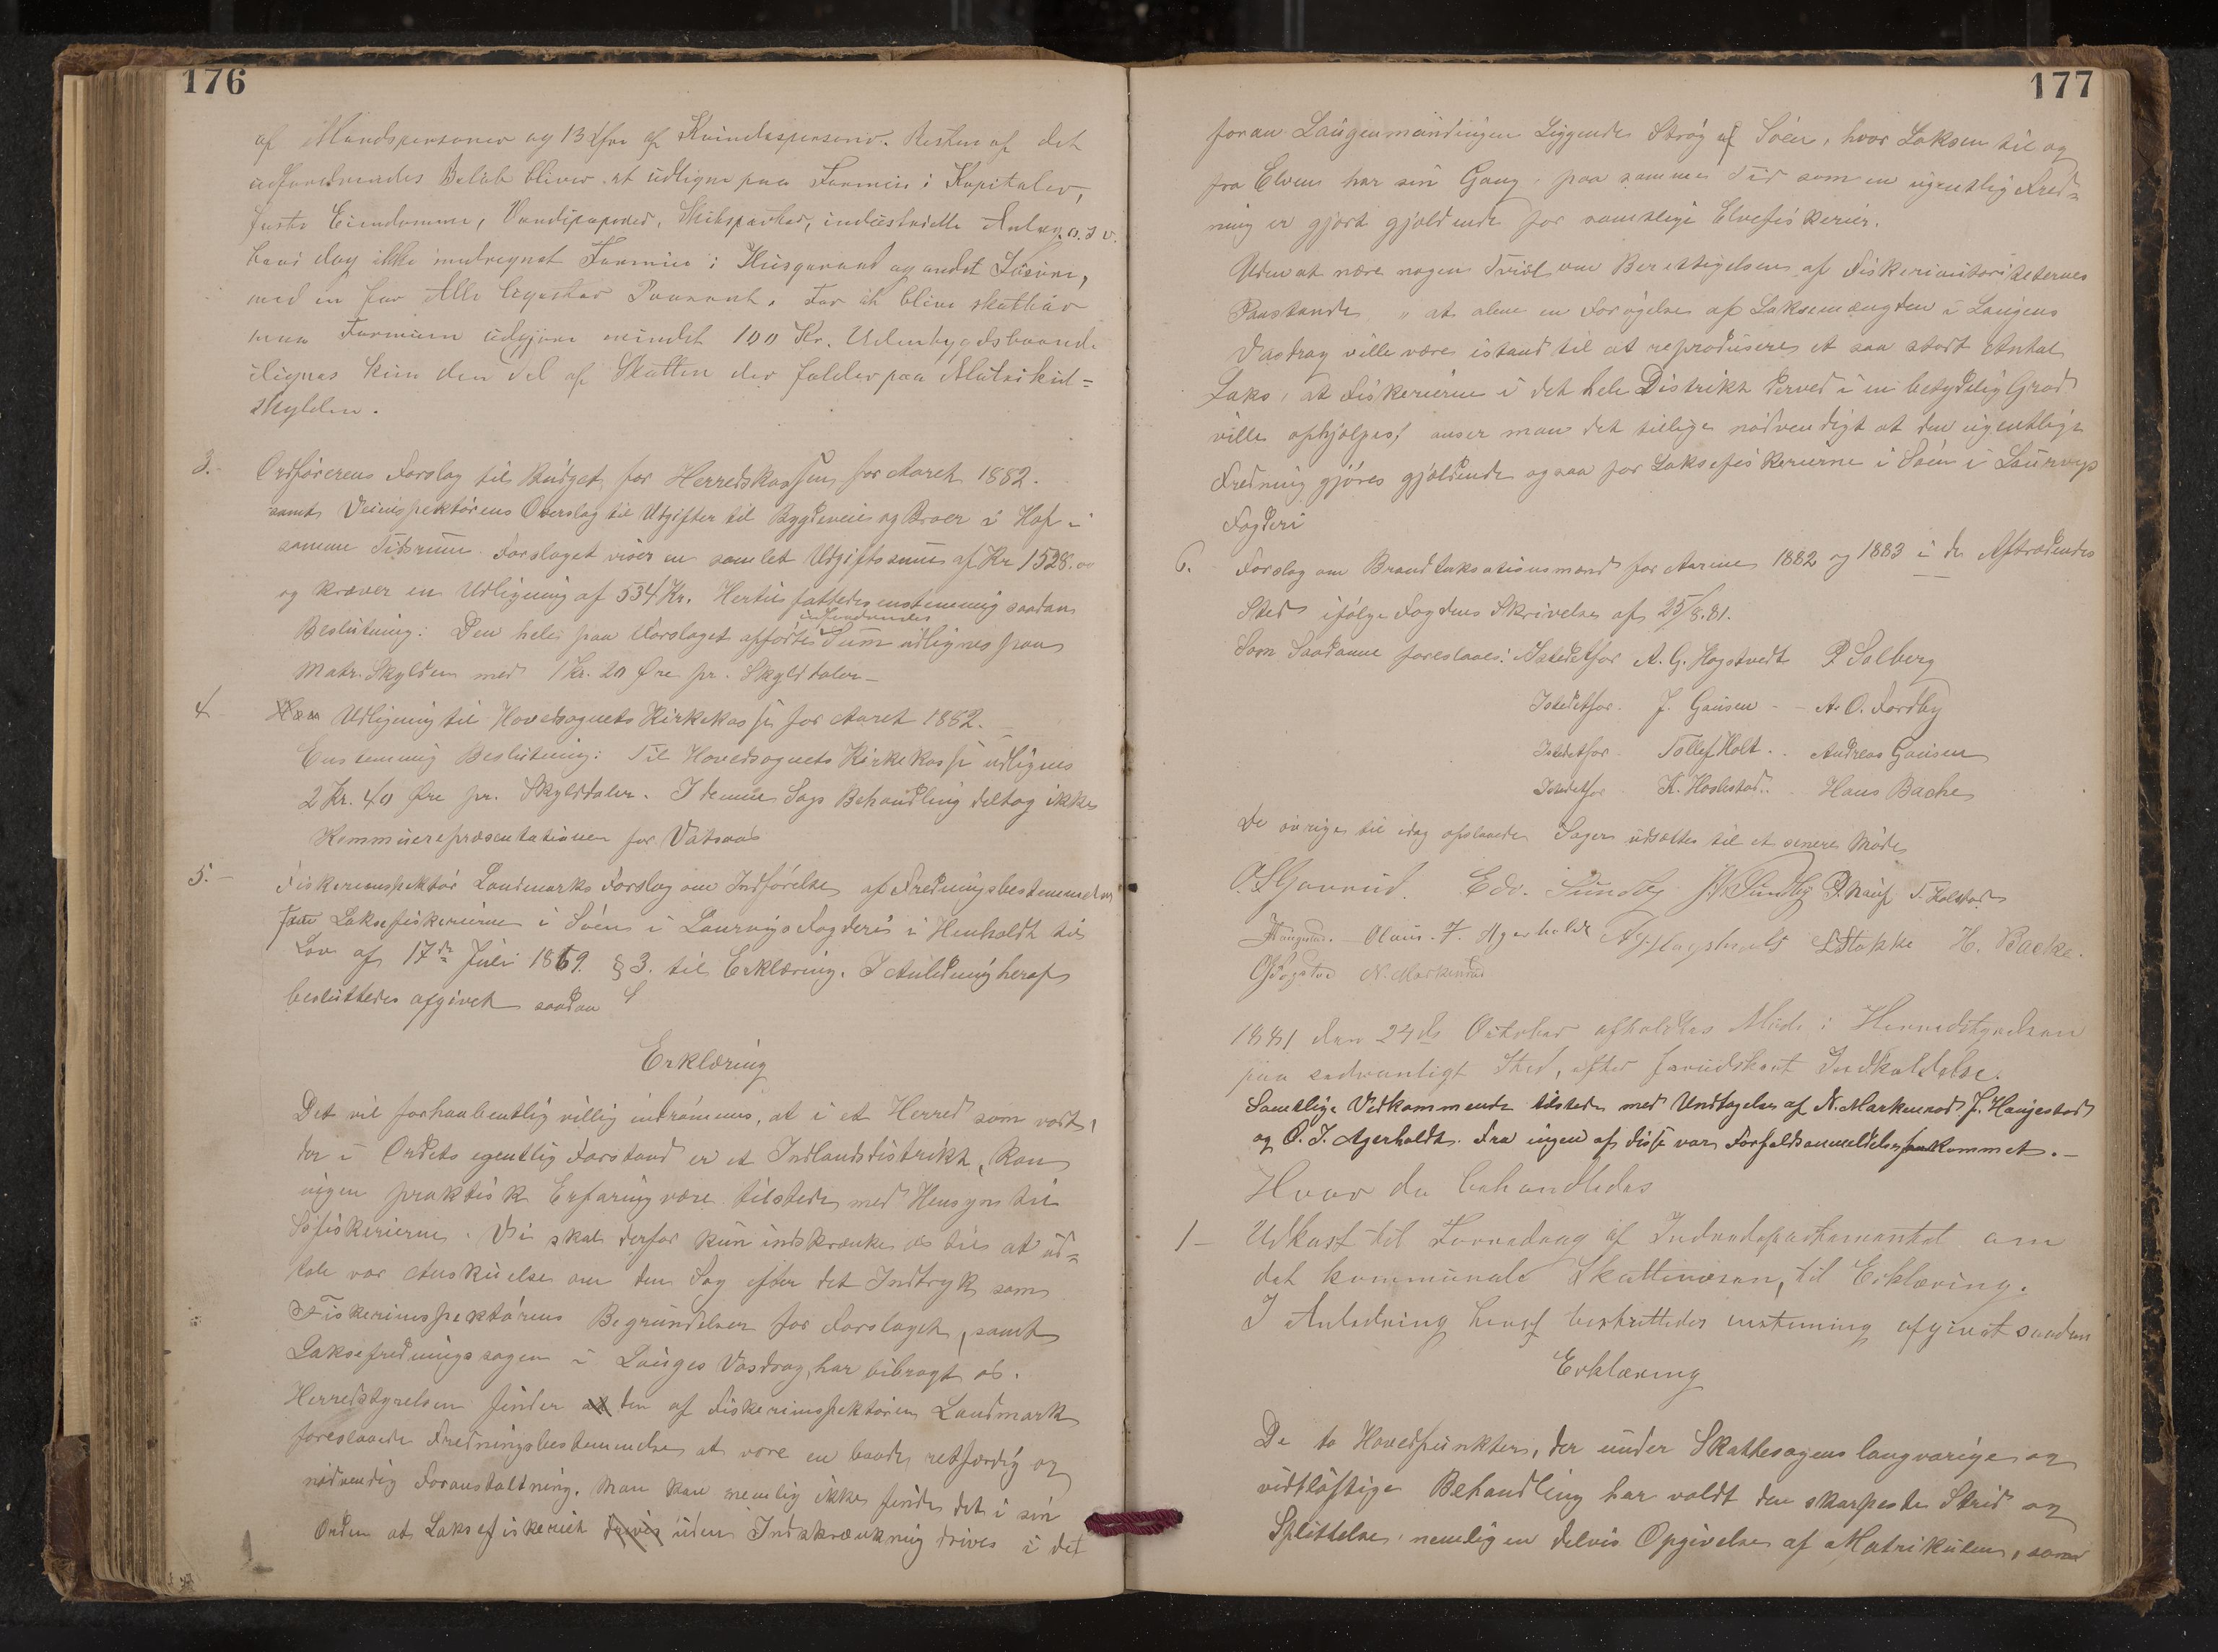 176
af Mandspersoner og 13 Øre af Kvindespersoner. Resten af det
udfordrendes Beløb bliver at udligne paa Formue i Kapitaler,
faste Eiendomme, Værdipapirer, Skibsparter, industrielle Anlæg o.s.v.
dog ikke medregnet Formue i Husgeraad og andet Løsøre,
med en for Alle ligestor Procent. For at blive skatbar
maa Formuen udgjøre mindst 100 Kr. Udenbygdsboende
ilignes kun den Del af Skatten der falder paa Matrikul=
skylden.
3. Ordførerens Forslag til Budget for Herredskassen for Aaret 1882.
samt Veiinspektørens Overslag til Utgifter til Bygdeveie og Broer i Hof i
samme Tidsrum. Forslaget viser en samlet Udgiftssum af Kr 1528.00
og kræver en Udligning af 534 Kr. Hertil fattedes enstemmig saadan
udfordrendes
Beslutning: Den hele paa Forslaget opførte Sum udlignes paa
Matr. Skylden med 1 Kr. 20 Øre pr. Skylddaler –
4 Udligning til Hovedsognets Kirkekasse for Aaret 1882.
Enstemmig Beslutning: Til Hovedsognets Kirkekasse udlignes
2 Kr. 40 Øre pr. Skylddaler. I denne Sags Behandling deltog ikke
Kommunerepræsentationen for Vatsaas
5. – Fiskeriinspektør Landmarks Forslag om Indførelse af Fredningsbestemmelser
for Laksefiskerierne i Søen i Laurvigs Fogderi i Henholdt til
Lov af 17de Juli 1869. § 3. til Erklæring. I Anledning heraf
besluttedes afgivet saadan
Erklæring
Det vil forhaabentlig villig indrømmes, at i et Herred som vort,
der i Ordets egentlig Forstand er et Indlandsdistrikt, kan
ingen praktisk Erfaring være tilstede med Hensyn til
Søfiskerierne. Vi skal derfor kun indskrænke os til at ud=
tale vor Anskuelse om den Sag efter det Indtryk som
Fiskeriinspektørens Begrundelser for Forslaget, samt
Laksefredningssagen i Laugens Vasdrag, har bibragt os.
Herredstyrelsen finder den af Fiskeriinspektøren Landmark
foreslaaede Fredningsbestemmelse at være en baade retfærdig og
nødvendig Foranstaltning. Man kan nemlig ikke finde det i sin
Orden at Laksefiskeriet drives uden Indskrænkning drives i det
177
foran Laugenmundingen Liggende Strøg af Søen, hvor Laksen til og
fra Elven har sin Gang, paa samme Tid som en ugentlig Fred=
ning er gjort gjældende for samtlige Elvefiskerier.
Uden at nære nogen Tvivl om Berettigelsen af Fiskeriautoriteternes
Paastande, " at alene en Forøgelse af Laksemængden i Laugens
Vasdrag ville være istand til at reproducere et saa stort Antal
Laks, at Fiskerierne i det hele Distrikt derved i en betydelig Grad
ville ophjælpes, anser man det tillige nødvendigt at den ugentlige
Fredning gjøres gjældende ogsaa for Laksefiskerierne i Søen i Laurvigs
Fogderi
6. Forslag om Brandtaksationsmænd for Aarene 1882 og 1883 i de Aftrædendes
Sted ifølge Fogdens Skrivelse af 25/8.81.
Som Saadanne foreslaaes: Istedetfor A. G. Hogstvedt P Solberg
Istedetfor J. Gausen – – A. O. Fordby
Istedetfor Tollef Holt . . Andreas Gausen
Istedetfor K. Holestad . . Hans Bache
De øvrige til idag opslaaede Sager udsættes til et senere Møde
Edv. Sundby Sundby T. Holstad
Olaus. F. Agerholdt L Stokke H. Backe.
N. Markerud
1881 den 24de October afholdtes Møde i Herredstyrelsen
paa sedvanligt Sted, efter forudskeet Indkaldelse.
Samtlige Vedkommende tilstede med Undtagelse af N. Markerud J. Haugestad
og O. J. Agerholdt. Fra ingen af disse var Forfaldsanmeldelse fremkommet. –
Hvor da behandledes
1 – Udkast til Foredrag af Indredepartementet om
det kommunale Skattevæsen, til Erklæring.
I Anledning heraf besluttedes enstemmig afgivet saadan
Erklæring
De to Hovedpunkter, der under Skattesagens langvarige og
vidtløftige Behandling har voldt den skarpeste Strid og
Splittelse, nemlig en delvis Opgivelse af Matrikulen, som